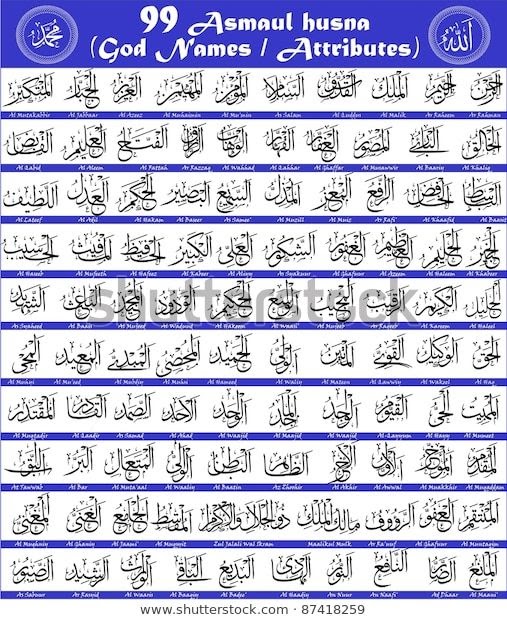 99 Asmaul husna
(God Names / Attributes)
محمد
الله
الرحمن الرحيم الملك القدوس السلام المؤمن المهيمن العزيز الجبار المتكبر
Al Mutakabbir Al Jabbaar Al Azeez Al Muhaimin Al Mu'min As Salam Al Quddus Al Malik Ar Raheem Ar Rahman
الخالق البارئ المصور الغفار القهار الوهاب الرزاق الفتاح العليم القابض
Al Qabid Al Aleem Al Fattah Ar Razzaq Al Wahhad Al Qahhar Al Ghaffar Al Musawwir Al Baariy Al Khaliq
الباسط الخافض الرافع المعز المذل السميع البصير الحكم العدل اللطيف
Al Lateef Al Adl Al Hakam Al Baseer As Samee' Al Muzill Al Muiz Ar Rafi' Al Khaafid Al Baasit
الخبير الحليم العظيم الغفور الشكور العلي الكبير الحفيظ المقيت الحسيب
Al Haseeb Al Muqeeth Al Hafeez Al Kabeer Al Aliyy As Syakuur Al Ghafuur Al Azeem Al Haleem Al Khabeer
الجليل الكريم الرقيب المجيب الواسع الحكيم الودود المجيد الباعث الشهيد
As Syaheed Al Baais Al Majeed Al Waduud Al Hakeem Al Waasi' Al Mujeeb Ar Raqeeb Al Kareem Al Jaleel
الحق الوكيل القوي المتين الولي الحميد المحصي المبدئ المعيد المحيي
Al Muhyi Al Mu'eed Al Mubdiy Al Muhsi Al Hameed Al Waliy Al Mateen Al Qawwiy Al Wakeel Al Haq
المميت الحي القيوم الواجد الماجد الواحد الاحد الصمد القادر المقتدر
Al Muqtadir Al Qaadir As Samad Al Ahad Al Waajid Al Maajid Al Waajid Al-Qayyum Al Hayy Al Mumeet
المقدم المؤخر الأول الآخر الظاهر الباطن الوالي المتعال البر التواب
At Tawwab Al Bar Al Muta'aal Al Waaliy Al Baatin Az Zhohir Al Akhir Al Awwal Al Muakkhir Al Muqaddam
المنتقم العفو الرؤوف مالك الملك ذو الجلال والإكرام المقسط الجامع الغني المغني
Al Mughniy Al Ghaniy Al Jaami' Al Muqsyit Zul Jalali Wal Ikram Maalikul Mulk Ar Ra'uuf Al Ghafuur Al Muntaqim
المانع الضار النافع النور الهادي البديع الباقي الوارث الرشيد الصبور
As Sabuur Ar Rasyid Al Waaris Al Baaqiy Al Badee' Al Haadi An Nuur An Naafi' Ad Dhaar Al Maani'
shutterstock
www.shutterstock.com · 87418259